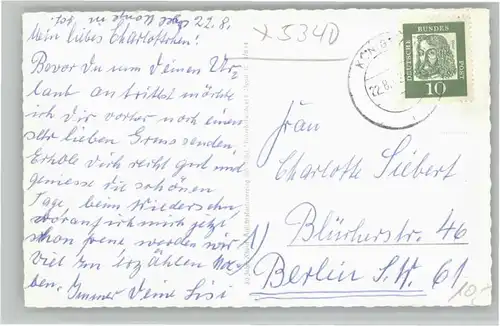 22.8.
Mein liebes Charlottchen!
Bevor Du nun Deinen Ur-
laub antrittst möchte
ich Dir vorher noch einen
sehr lieben Gruss senden.
Erhole Dich recht gut und
geniesse die schönen
Tage, beim Wiedersehn
worauf ich mich jetzt
schon freue werden wir
viel zu erzählen ha-
ben.
Immer Deine Sisi
x 534D
22.8.
DEUTSCHE BUNDESPOST
10
Frau
Charlotte Siebert
Blücherstr. 46
1)
Berlin S.W. 61
10,-